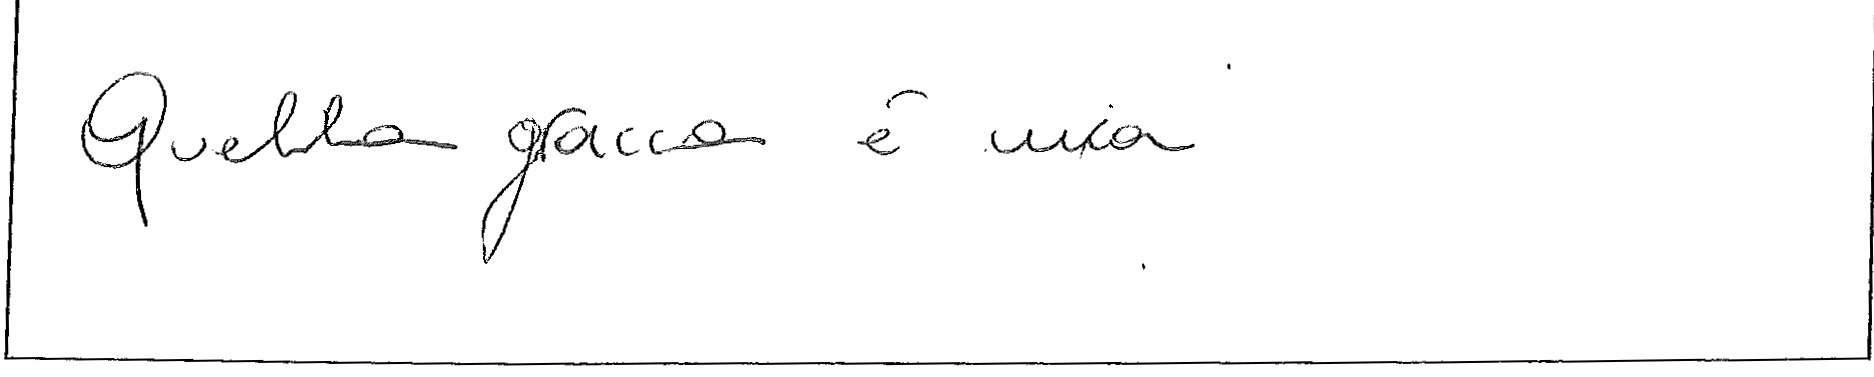 Quella giacca è mia